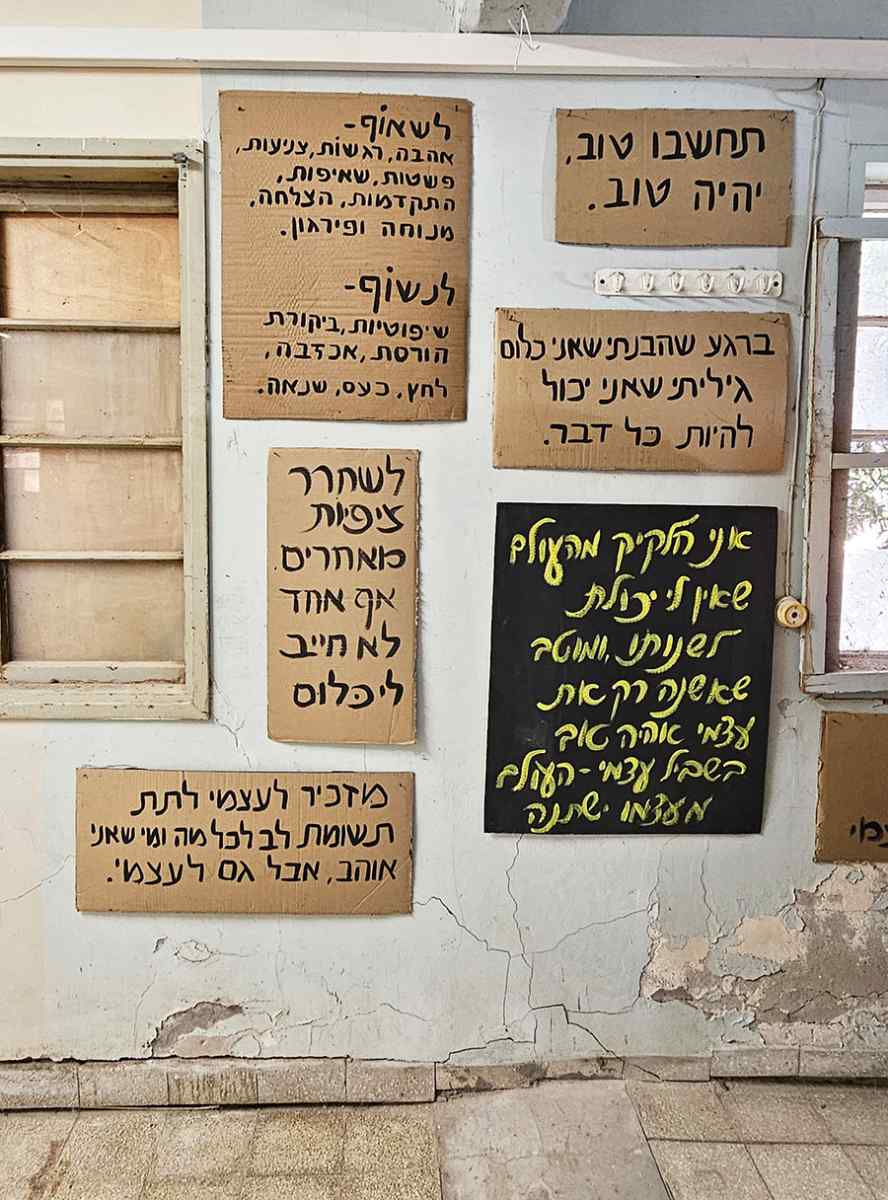 לשאוף-
אהבה, רגשות, צניעות,
פשטות, שאיפות,
התקדמות, הצלחה,
מנוחה ופירגון.
לנשוף-
שיפוטיות, ביקורת
הורסת, אכזבה,
לחץ, כעס, שנאה.
תחשבו טוב,
יהיה טוב.
ברגע שהבנתי שאני כלום
גיליתי שאני יכול
להיות כל דבר.
לשחרר
ציפיות
מאחרים.
אף אחד
לא חייב
לי כלום
אני חלקיק מהעולם
שאין לי יכולת
לשנותו, ומוטב
שאשנה רק את
עצמי אוהיה טוב
בשביל עצמי - העולם
מעצמו ישתנה
מזכיר לעצמי לתת
תשומת לב לכל מה ומי שאני
אוהב, אבל גם לעצמי.